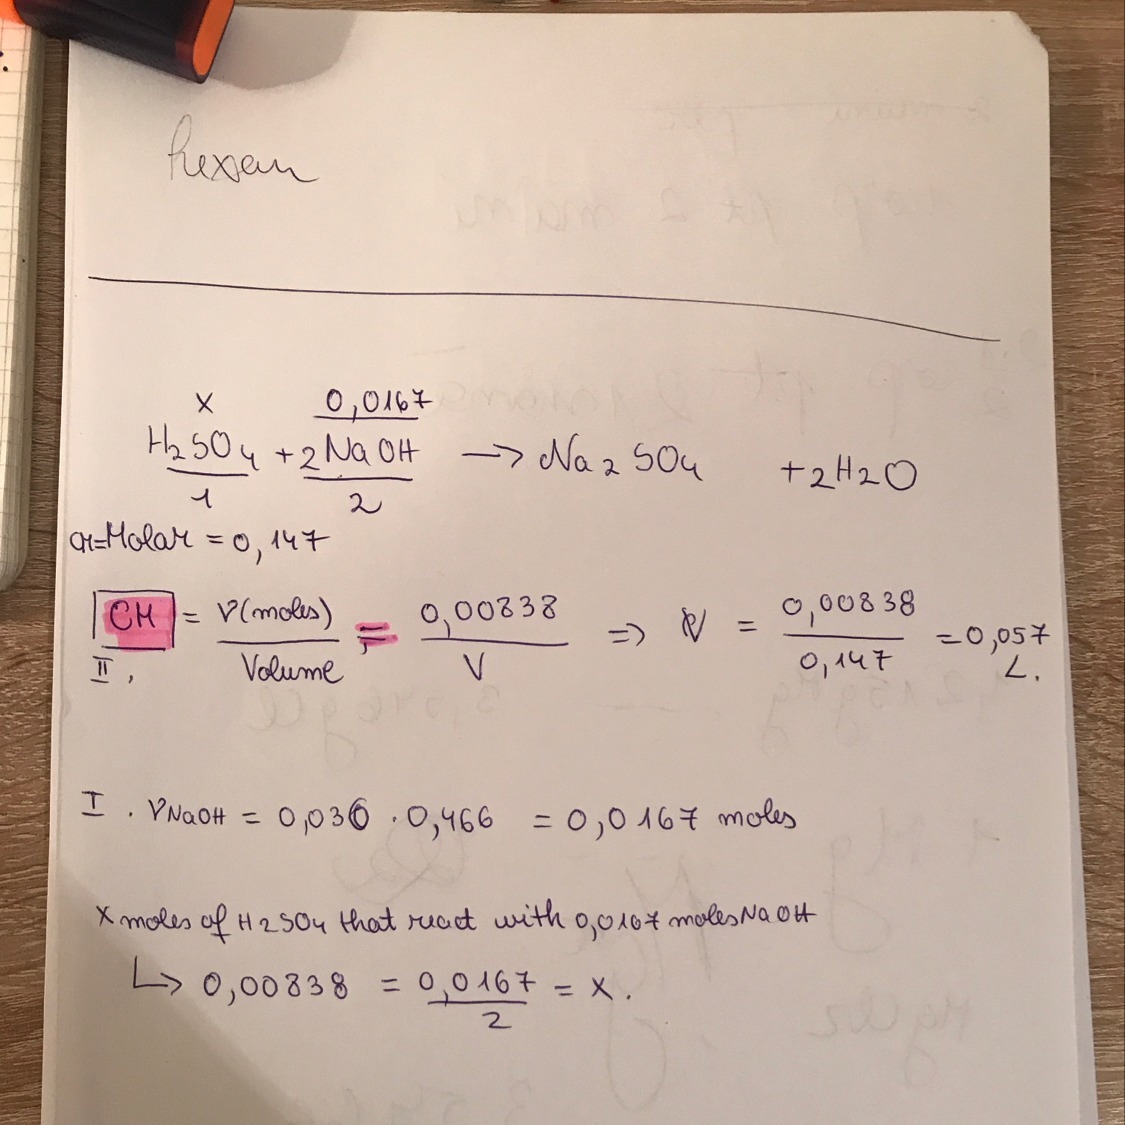 hexan
x 0,0167
H2SO4 + 2NaOH → Na2SO4 + 2H2O
1 2
CM=Molar = 0,147
CM = ν(moles) / Volume = 0,00838 / V => V = 0,00838 / 0,147 = 0,057 L.
II,
I . νNaOH = 0,036 · 0,466 = 0,0167 moles
x moles of H2SO4 that react with 0,0167 moles NaOH
↳ 0,00838 = 0,0167 / 2 = x.